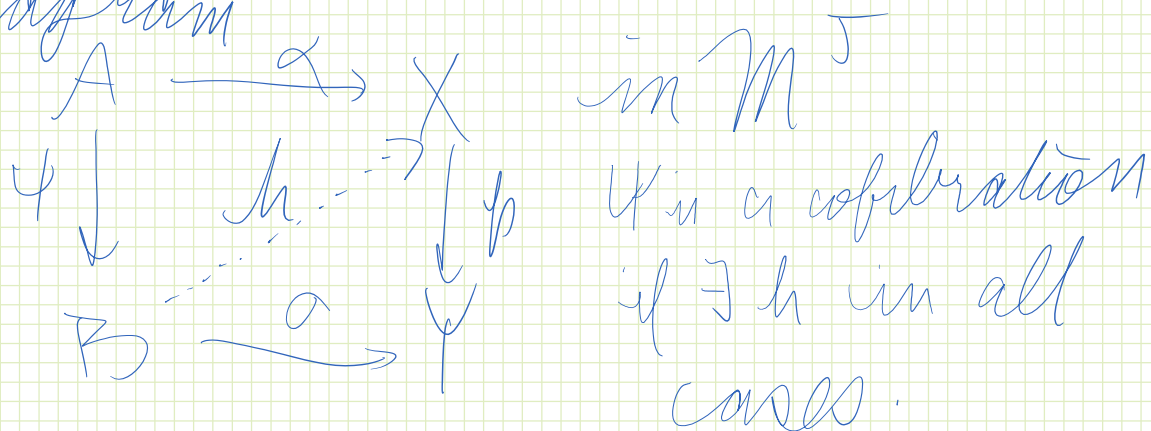 diagram
A α X in M^J
ψ h p ψ is a cofibration
if ∃ h in all
B σ Y
cases.